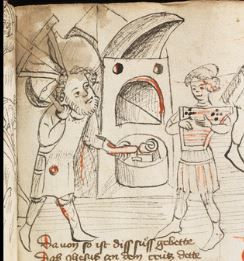 Da von so ist diß süß gebette
Das ihesus an dem crütz dette